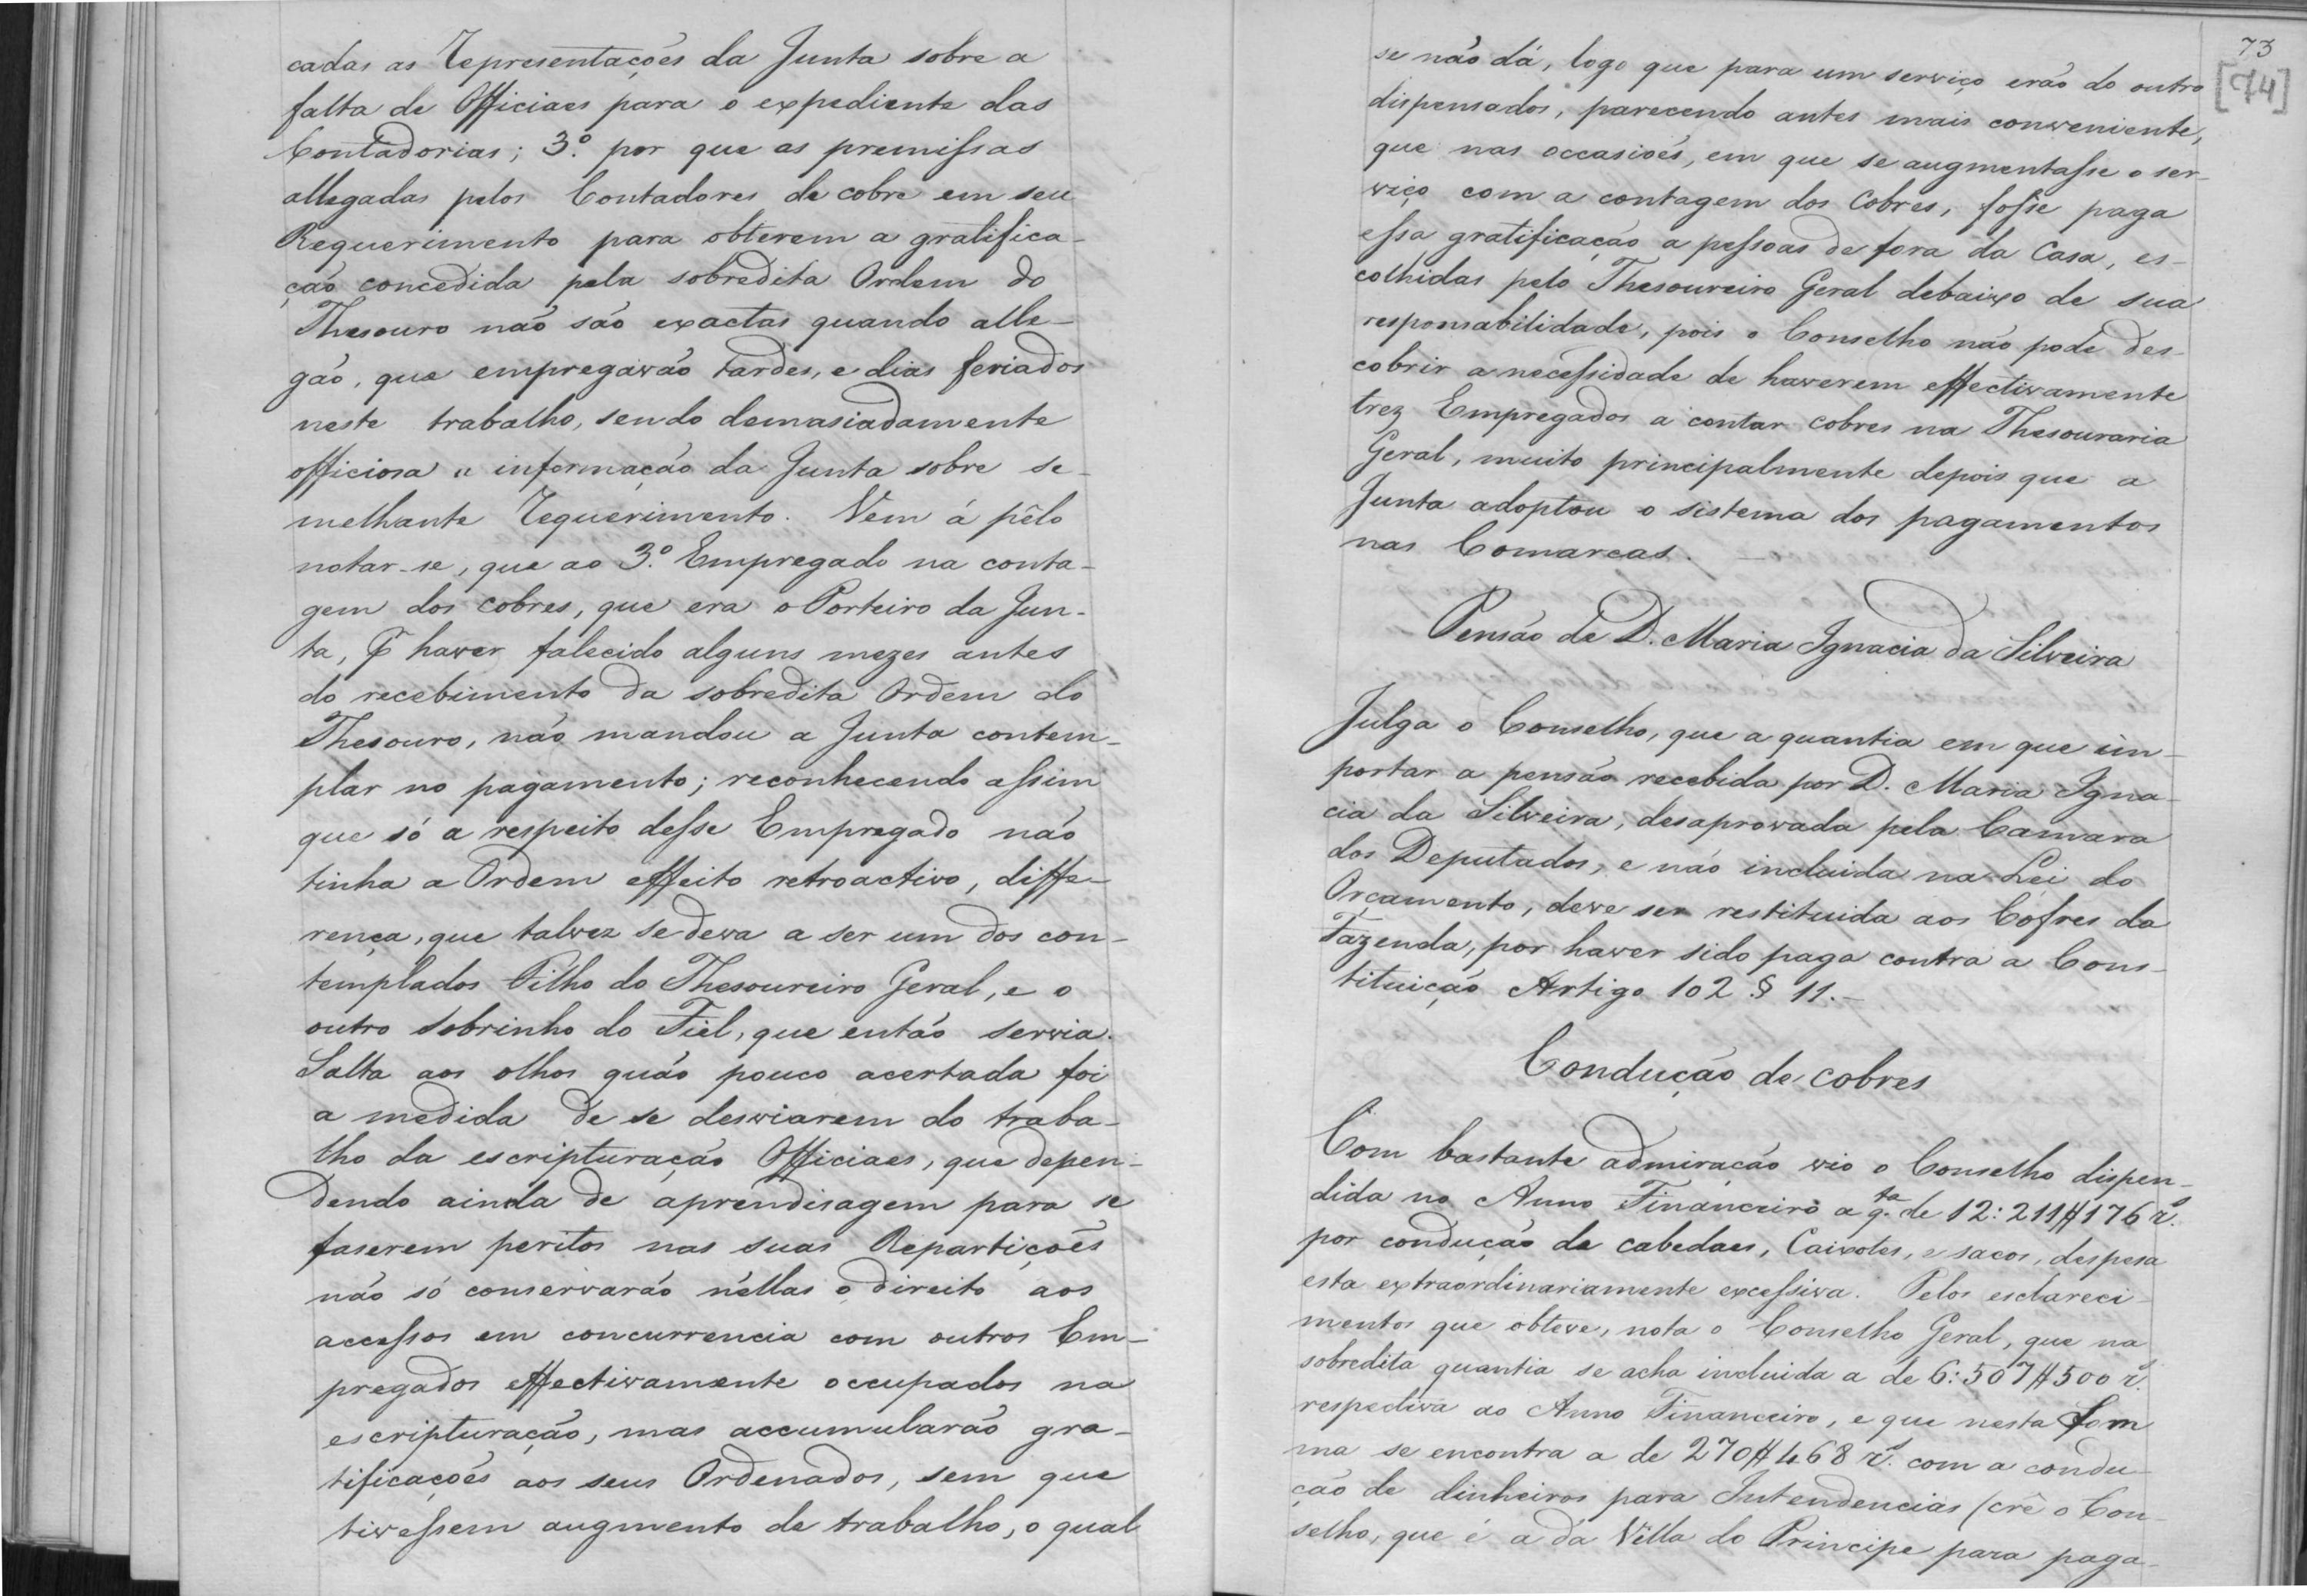 cadas as Representações da Junta sobre a
falta de Officiaes para o expediente das
Contadorias; 3.º por que as premissas
allegadas pelos Contadores de cobre em seu
Requerimento para obterem a gratifica-
ção concedida pela sobredita Ordem do
Thesouro não são exactas quando alle-
gão, que empregavão tardes, e dias feriados
neste trabalho, sendo demasiadamente
officiosa a informação da Junta sobre se-
melhante Requerimento. Vem á pêlo
notar-se, que ao 3.º Empregado na conta-
gem dos cobres, que era o Porteiro da Jun-
ta, p haver falecido alguns mezes antes
do recebimento da sobredita Ordem do
Thesouro, não mandou a Junta contem-
plar no pagamento; reconhecendo assim
que só a respeito desse Empregado não
tinha a Ordem effeito retroactivo, diffe-
rença, que talvez se deva a ser um dos con-
templados Filho do Thesoureiro Geral, e o
outro sobrinho do Fiel, que então servia.
Salta aos olhos quão pouco acertada foi
a medida de se desviarem do traba-
lho da escripturação Officiaes, que depen-
dendo ainda de aprendisagem para se
faserem peritos nas suas Repartições
não só conservarão n'ellas o direito aos
accessos em concurrencia com outros Em-
pregados effectivamente occupados na
escripturação, mas accumularão gra-
tificações aos seus Ordenados, sem que
tivessem augmento de trabalho, o qual
73
[74]
se não dá, logo que para um serviço erão do outro
dispensados, parecendo antes mais conveniente,
que nas occasiões, em que se augmentasse o ser-
viço com a contagem dos Cobres, fosse paga
essa gratificação a pessoas de fora da Casa, es-
colhidas pelo Thesoureiro Geral debaixo de sua
responsabilidade, pois o Conselho não pode des-
cobrir a necessidade de haverem effectivamente
trez Empregados a contar cobres na Thesouraria
Geral, muito principalmente depois que a
Junta adoptou o sistema dos pagamentos
nas Comarcas. —
Pensão de D. Maria Ignacia da Silveira
Julga o Conselho, que a quantia em que im-
portar a pensão recebida por D. Maria Igna-
cia da Silveira, desaprovada pela Camara
dos Deputados, e não incluida na Lei do
Orçamento, deve ser restituida aos Cofres da
Fazenda, por haver sido paga contra a Cons-
tituição Artigo 102 § 11.—
Condução de cobres
Com bastante admiração vio o Conselho dispen-
dida no Anno Financeiro a q.ta de 12:211$176 r.s
por condução de cabedaes, Caixotes, e sacos, despesa
esta extraordinariamente excessiva. Pelos esclareci-
mentos que obteve, nota o Conselho Geral, que na
sobredita quantia se acha incluida a de 6:507$500 r.s
respectiva ao Anno Financeiro, e que nesta som
ma se encontra a de 270$468 r.s com a condu-
ção de dinheiros para Intendencias (crê o Con-
selho, que é a da Villa do Principe para paga-